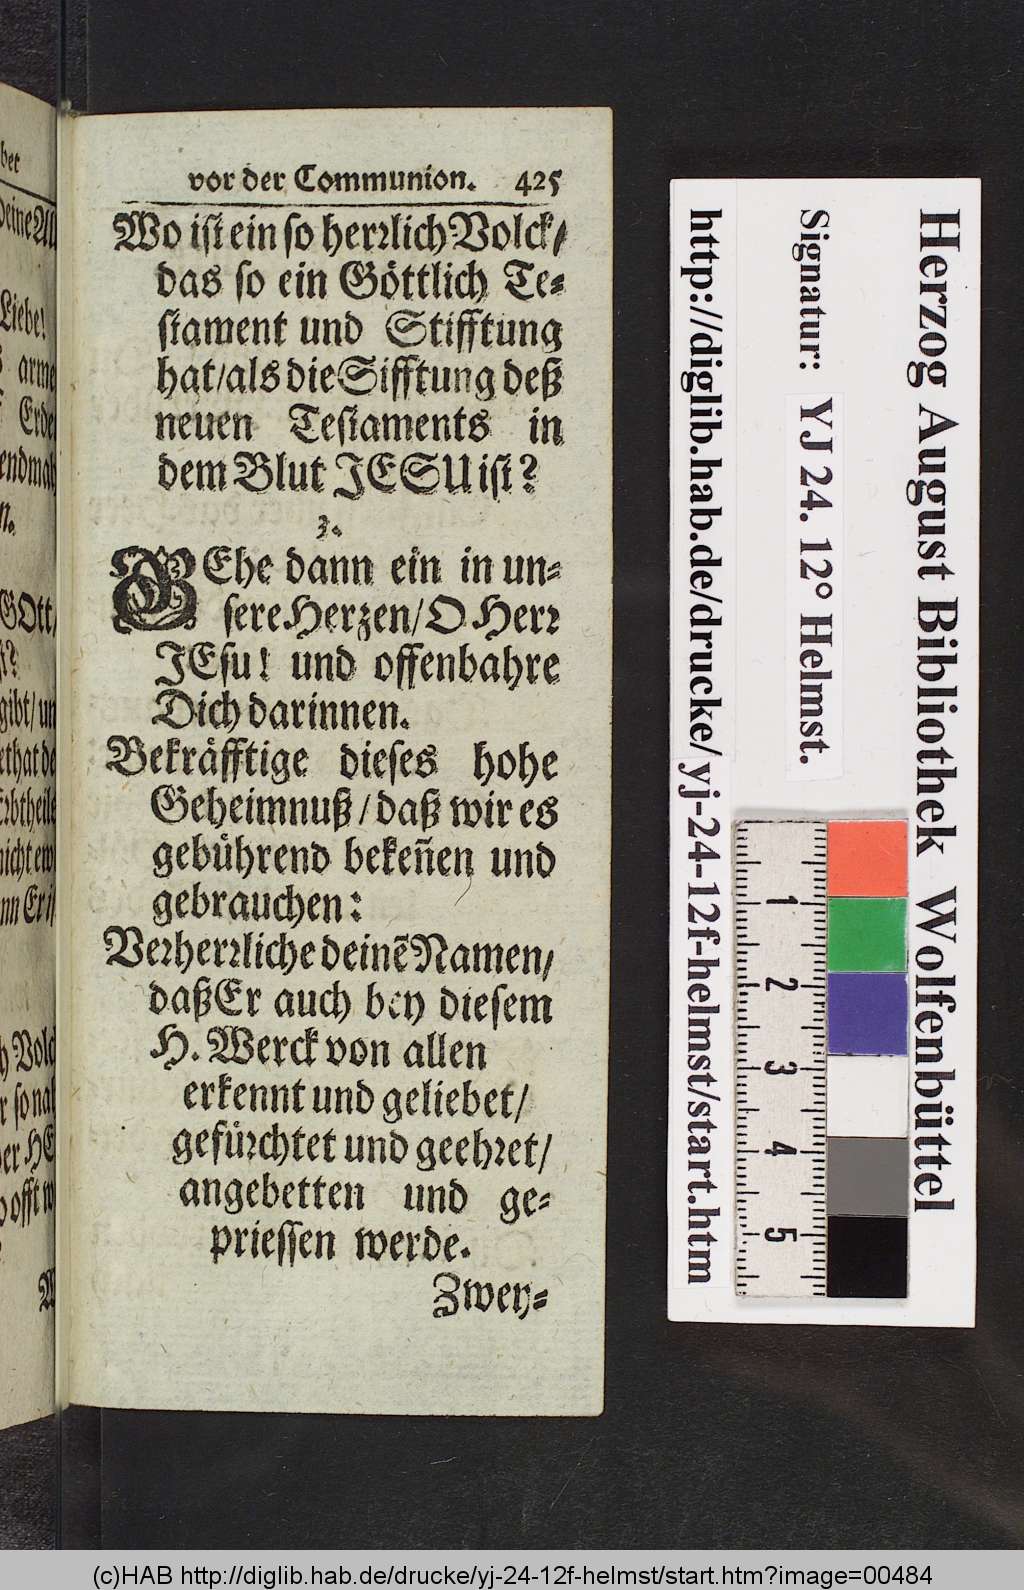 vor der Communion. 425
Wo ist ein so herrlich Volck/
das so ein Göttlich Te-
stament und Stifftung
hat/als die Sifftung deß
neuen Testaments in
dem Blut JESU ist?
3.
GEhe dann ein in un-
sere Herzen/O Herr
JEsu! und offenbahre
Dich darinnen.
Bekräfftige dieses hohe
Geheimnuß/daß wir es
gebührend bekeñen und
gebrauchen:
Verherrliche deinē Namen/
daß Er auch bey diesem
H. Werck von allen
erkennt und geliebet/
gefürchtet und geehret/
angebetten und ge-
priessen werde.
Zwey-
ber
Deine
Liebe!
arme
Erde
n.
GOtt/
gibt/
nicht
Er
Volc
so
HE
offt
Herzog August Bibliothek Wolfenbüttel
Signatur: YJ 24. 12° Helmst.
http://diglib.hab.de/drucke/yj-24-12f-helmst/start.htm
1
2
3
4
5
(c)HAB http://diglib.hab.de/drucke/yj-24-12f-helmst/start.htm?image=00484